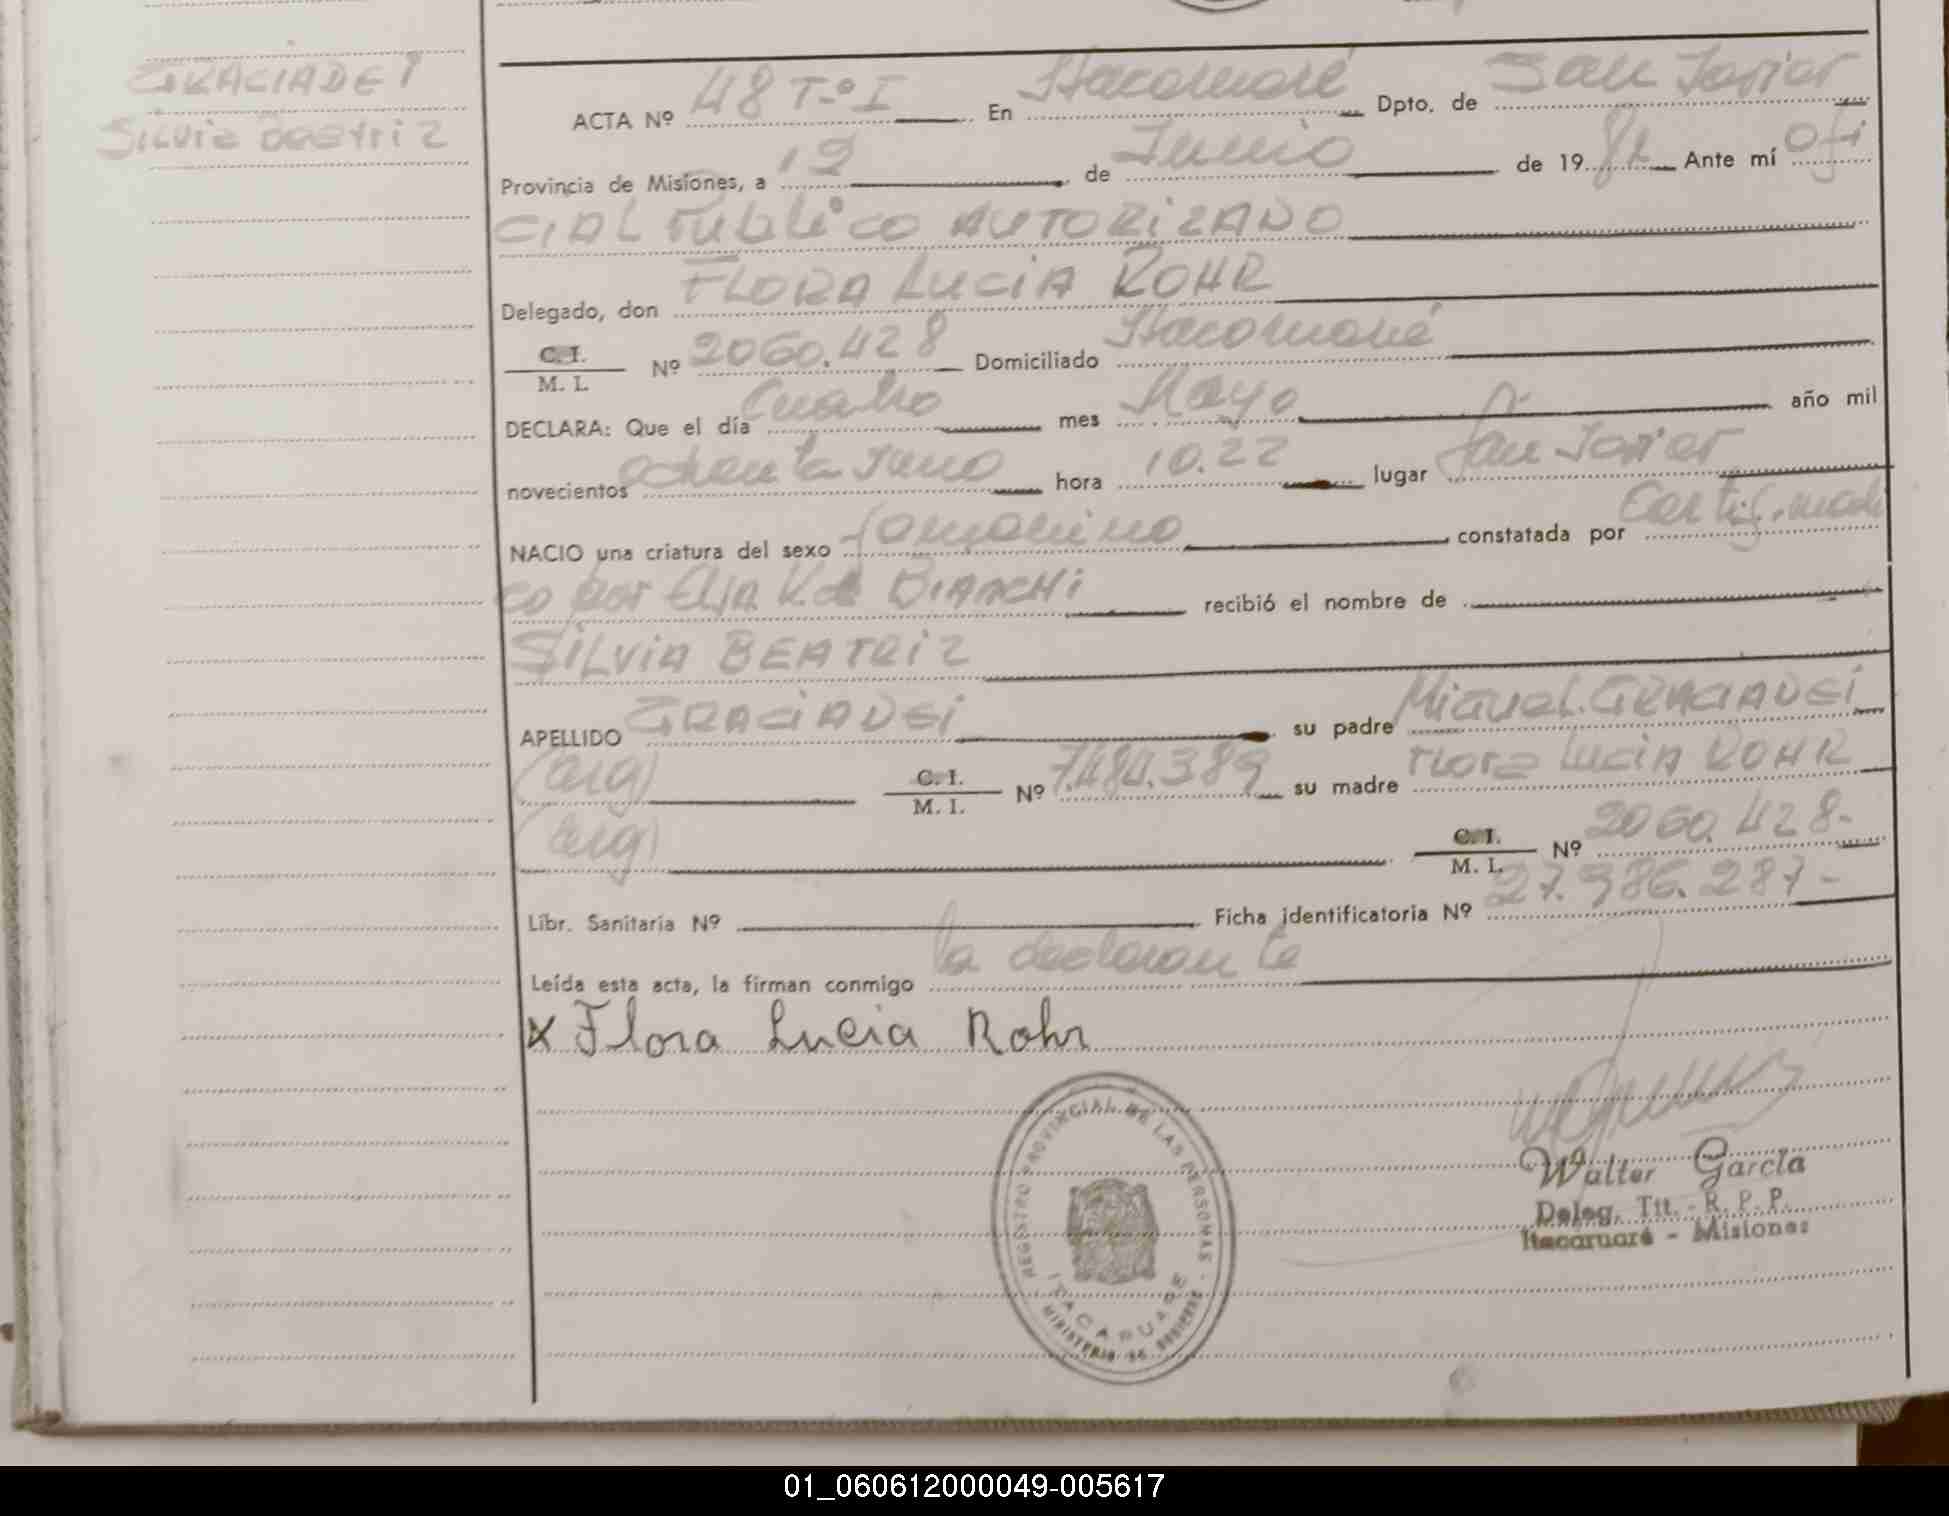 GRACIADEI
Silvia Beatriz
ACTA Nº 48 T-º I En Itacaruaré Dpto. de San Javier
Provincia de Misiones, a 19 de Junio de 1981 Ante mí Ofi
CIAL Público AUTORIZADO
Delegado, don FLORA LUCIA ROHR
C. I. / M. I. Nº 2060.428 Domiciliado Itacaruaré
DECLARA: Que el día Cuatro mes Mayo año mil
novecientos ochenta y uno hora 10.22 lugar San Javier
NACIO una criatura del sexo femenino constatada por Certif. medi
co por Elsa K. de BIANCHI recibió el nombre de
SILVIA BEATRIZ
APELLIDO GRACIADEI su padre Miguel GRACIADEI
(arg) C. I. / M. I. Nº 7.484.389 su madre Flora Lucia ROHR
(arg) C. I. / M. I. Nº 2060.428-
Libr. Sanitaria Nº Ficha identificatoria Nº 27.986.287-
Leída esta acta, la firman conmigo la declarante
x Flora Lucia Rohr
REGISTRO PROVINCIAL DE LAS PERSONAS
ITACARUARE
MINISTERIO DE GOBIERNO
Walter García
Deleg. Tit. - R. P. P.
Itacaruaré - Misiones
01_060612000049-005617